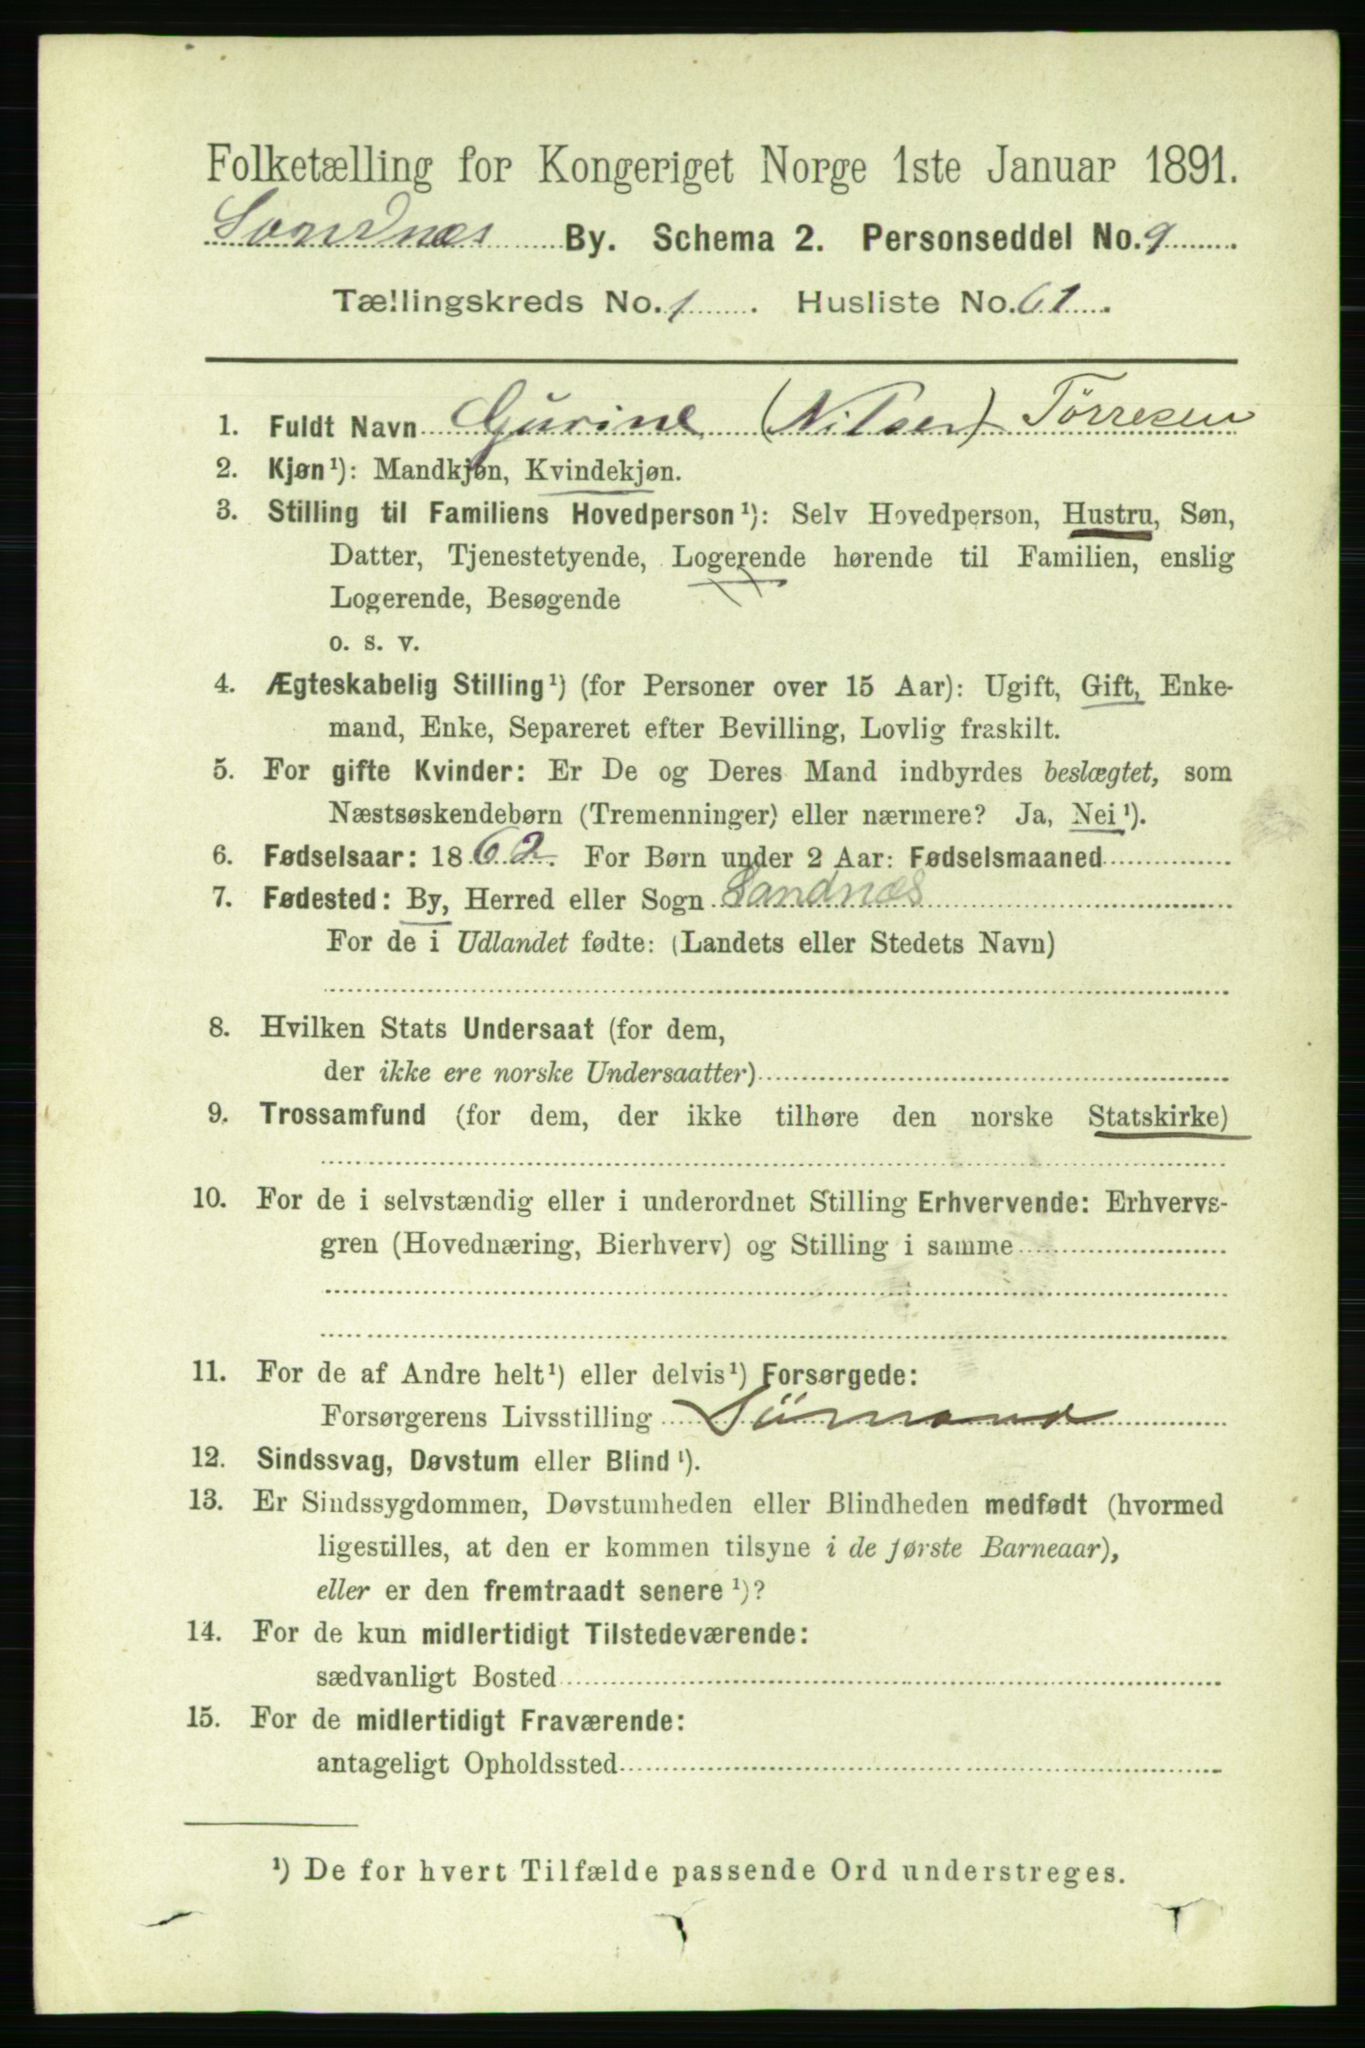 Folketælling for Kongeriget Norge 1ste Januar 1891.
Sandnæs By. Schema 2. Personseddel No. 9
Tællingskreds No. 1. Husliste No. 61.
1. Fuldt Navn Gurine (Nilsen) Tørresen
2. Kjøn¹): Mandkjøn, Kvindekjøn.
3. Stilling til Familiens Hovedperson¹): Selv Hovedperson, Hustru, Søn,
Datter, Tjenestetyende, Logerende hørende til Familien, enslig
Logerende, Besøgende
o. s. v.
4. Ægteskabelig Stilling¹) (for Personer over 15 Aar): Ugift, Gift, Enke-
mand, Enke, Separeret efter Bevilling, Lovlig fraskilt.
5. For gifte Kvinder: Er De og Deres Mand indbyrdes beslægtet, som
Næstsøskendebørn (Tremenninger) eller nærmere? Ja, Nei¹).
6. Fødselsaar: 1862. For Børn under 2 Aar: Fødselsmaaned
7. Fødested: By, Herred eller Sogn Sandnæs
For de i Udlandet fødte: (Landets eller Stedets Navn)
8. Hvilken Stats Undersaat (for dem,
der ikke ere norske Undersaatter)
9. Trossamfund (for dem, der ikke tilhøre den norske Statskirke)
10. For de i selvstændig eller i underordnet Stilling Erhvervende: Erhvervs-
gren (Hovednæring, Bierhverv) og Stilling i samme
11. For de af Andre helt¹) eller delvis¹) Forsørgede:
Forsørgerens Livsstilling Sömand
12. Sindssvag, Døvstum eller Blind¹).
13. Er Sindssygdommen, Døvstumheden eller Blindheden medfødt (hvormed
ligestilles, at den er kommen tilsyne i de første Barneaar),
eller er den fremtraadt senere¹)?
14. For de kun midlertidigt Tilstedeværende:
sædvanligt Bosted
15. For de midlertidigt Fraværende:
antageligt Opholdssted
¹) De for hvert Tilfælde passende Ord understreges.